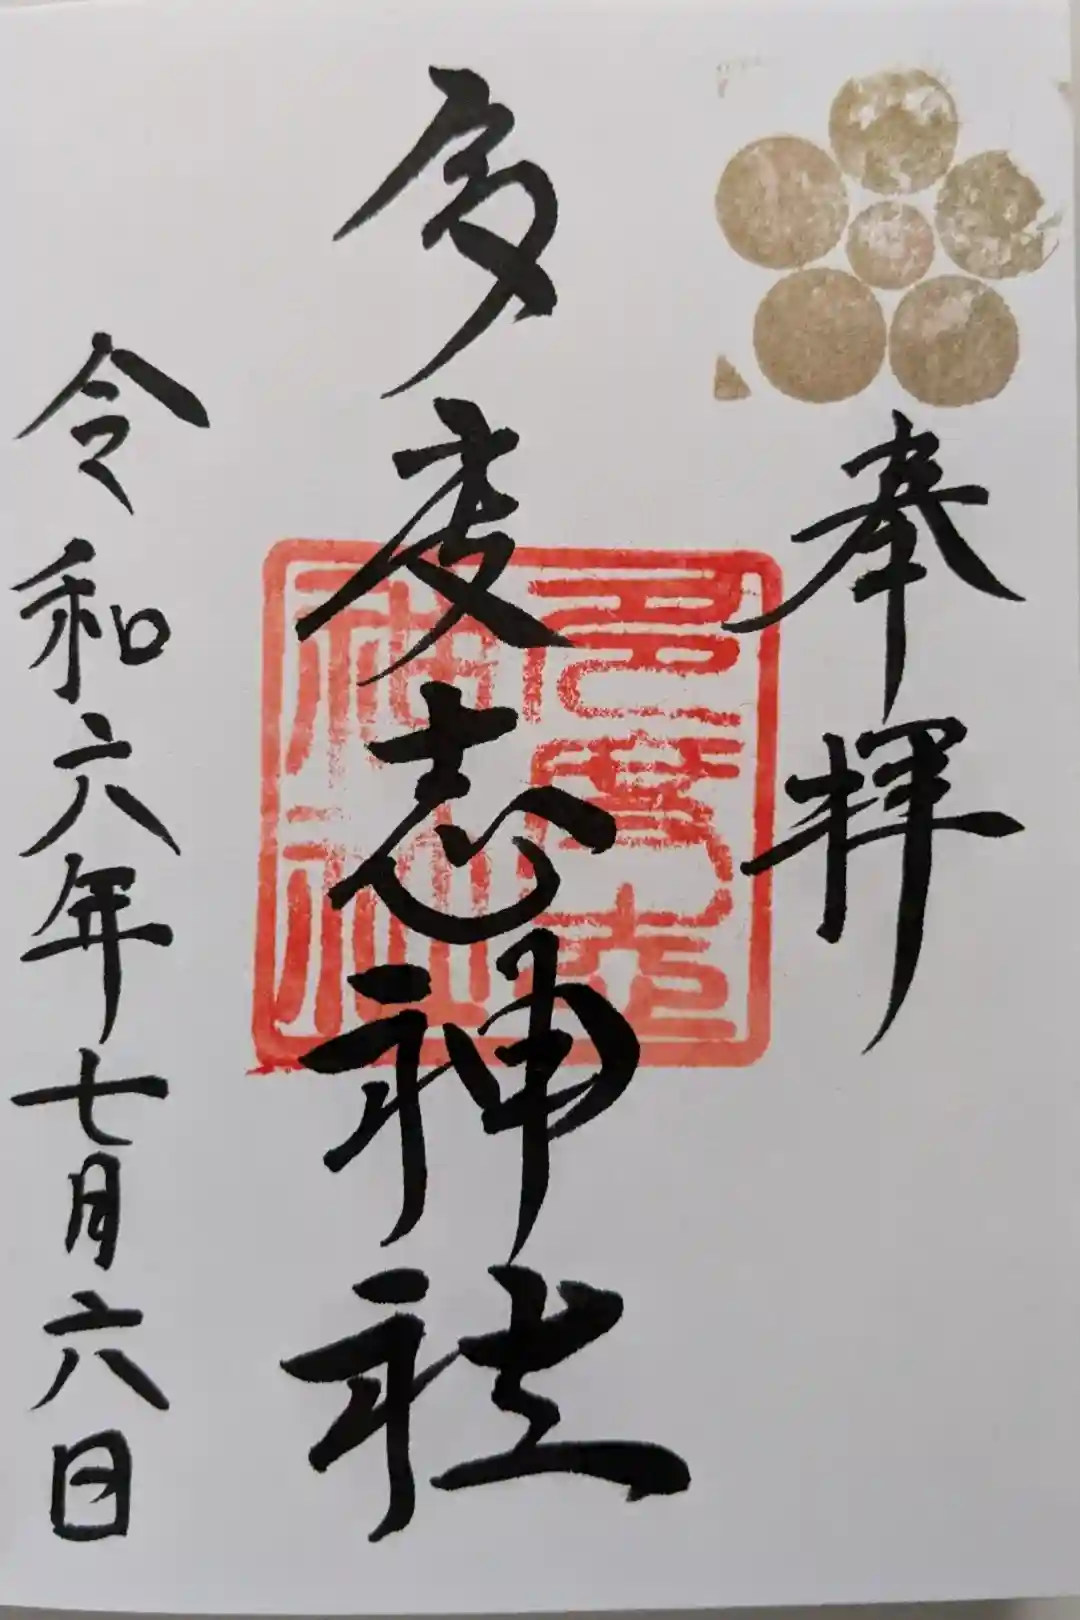 奉拝
多度志神社
多度志
神社
令和六年七月六日